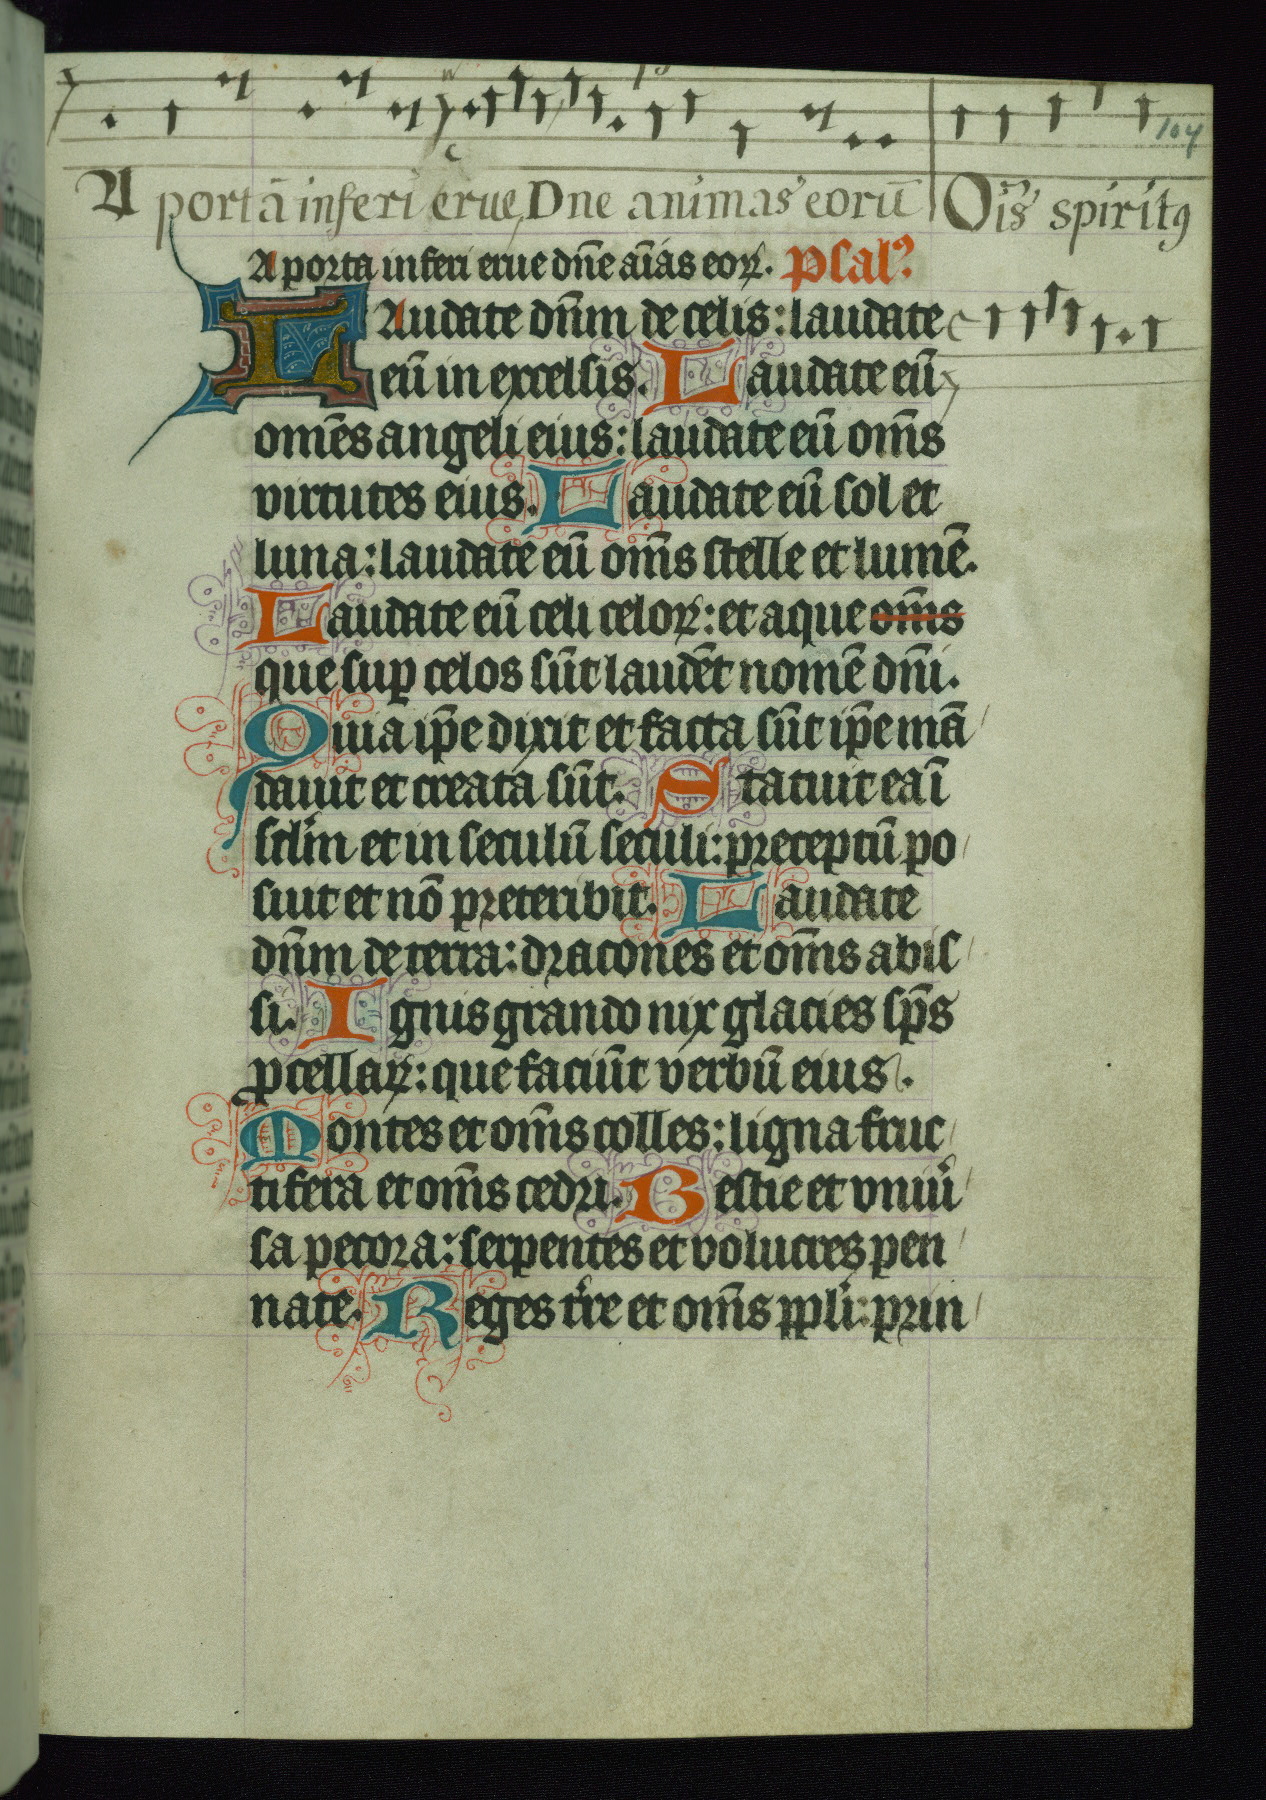 A portā inferi erue Dne animas eorū Oīs spiritꝯ
104
A porta inferi erue dn̄e aīas eoꝝ. psal'
LAudate dn̄m de celis: laudate
eū in excelsis. Laudate eū
om̄es angeli eius: laudate eū om̄s
virtutes eius. Laudate eū sol et
luna: laudate eū om̄s stelle et lumē.
Laudate eū celi celoꝝ: et aque om̄s
que suꝑ celos sūt laudēt nomē dn̄i.
Quia ip̄e dixit et facta sūt ip̄e mā
dauit et creata sūt. Statuit ea ī
sc̄lm et in seculū seculi: preceptū po
suit et nō preteribit. Laudate
dn̄m de terra: dracones et om̄s abis
si. Ignis grando nix glacies sp̄s
ꝓcellaꝝ: que faciūt verbū eius.
Montes et om̄s colles: ligna fruc
tifera et om̄s cedri. Bestie et vniu̾
sa pecora: serpentes et volucres pen
nate. Reges tr̄re et om̄s ppl̄i: prin